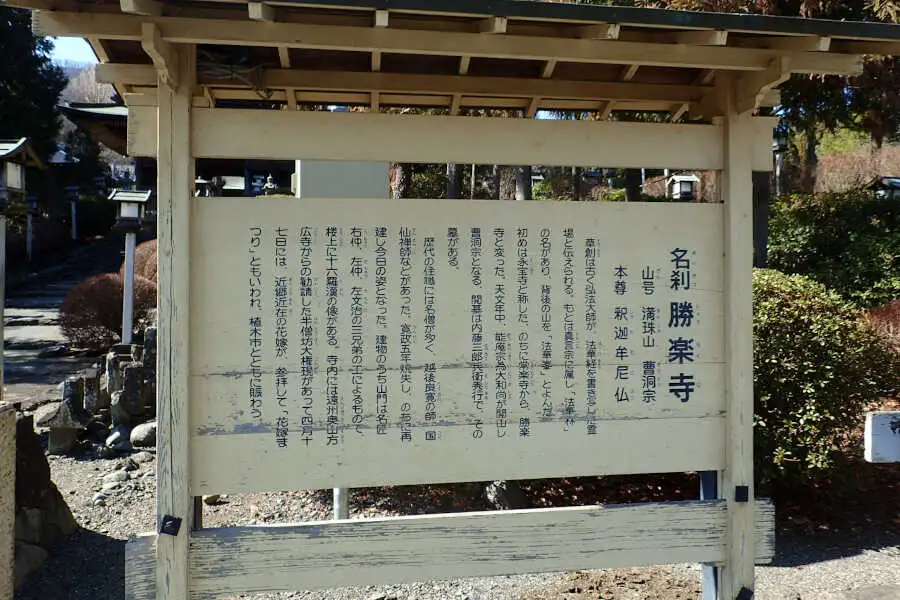 名刹 勝楽寺
山号 満珠山 曹洞宗
本尊 釈迦牟尼仏
草創は古く弘法大師が、法華経を書き写した霊
場と伝えられる。もとは真言宗に属し「法華林」
の名があり、背後の山を「法華峯」とよんだ。
初めは永宝寺と称した、のちに常楽寺から、勝楽
寺と変った。天文年中、能庵宗為大和尚が開山し
曹洞宗となる。開基は内藤三郎兵衛秀行で、その
墓がある。
歴代の住職には名僧が多く、越後良寛の師「国
仙禅師などがあった。寛政五年焼失し、のちに再
建し今日の姿となった。建物のうち山門は名匠
右仲、左仲、左文治の三兄弟の工によるもので、
楼上に十六羅漢の像がある。寺内には遠州奥山方
広寺からの勧請した半僧坊大権現があって四月十
七日には、近郷近在の花嫁が、参拝して「花嫁ま
つり」ともいわれ、植木市とともに賑わう。